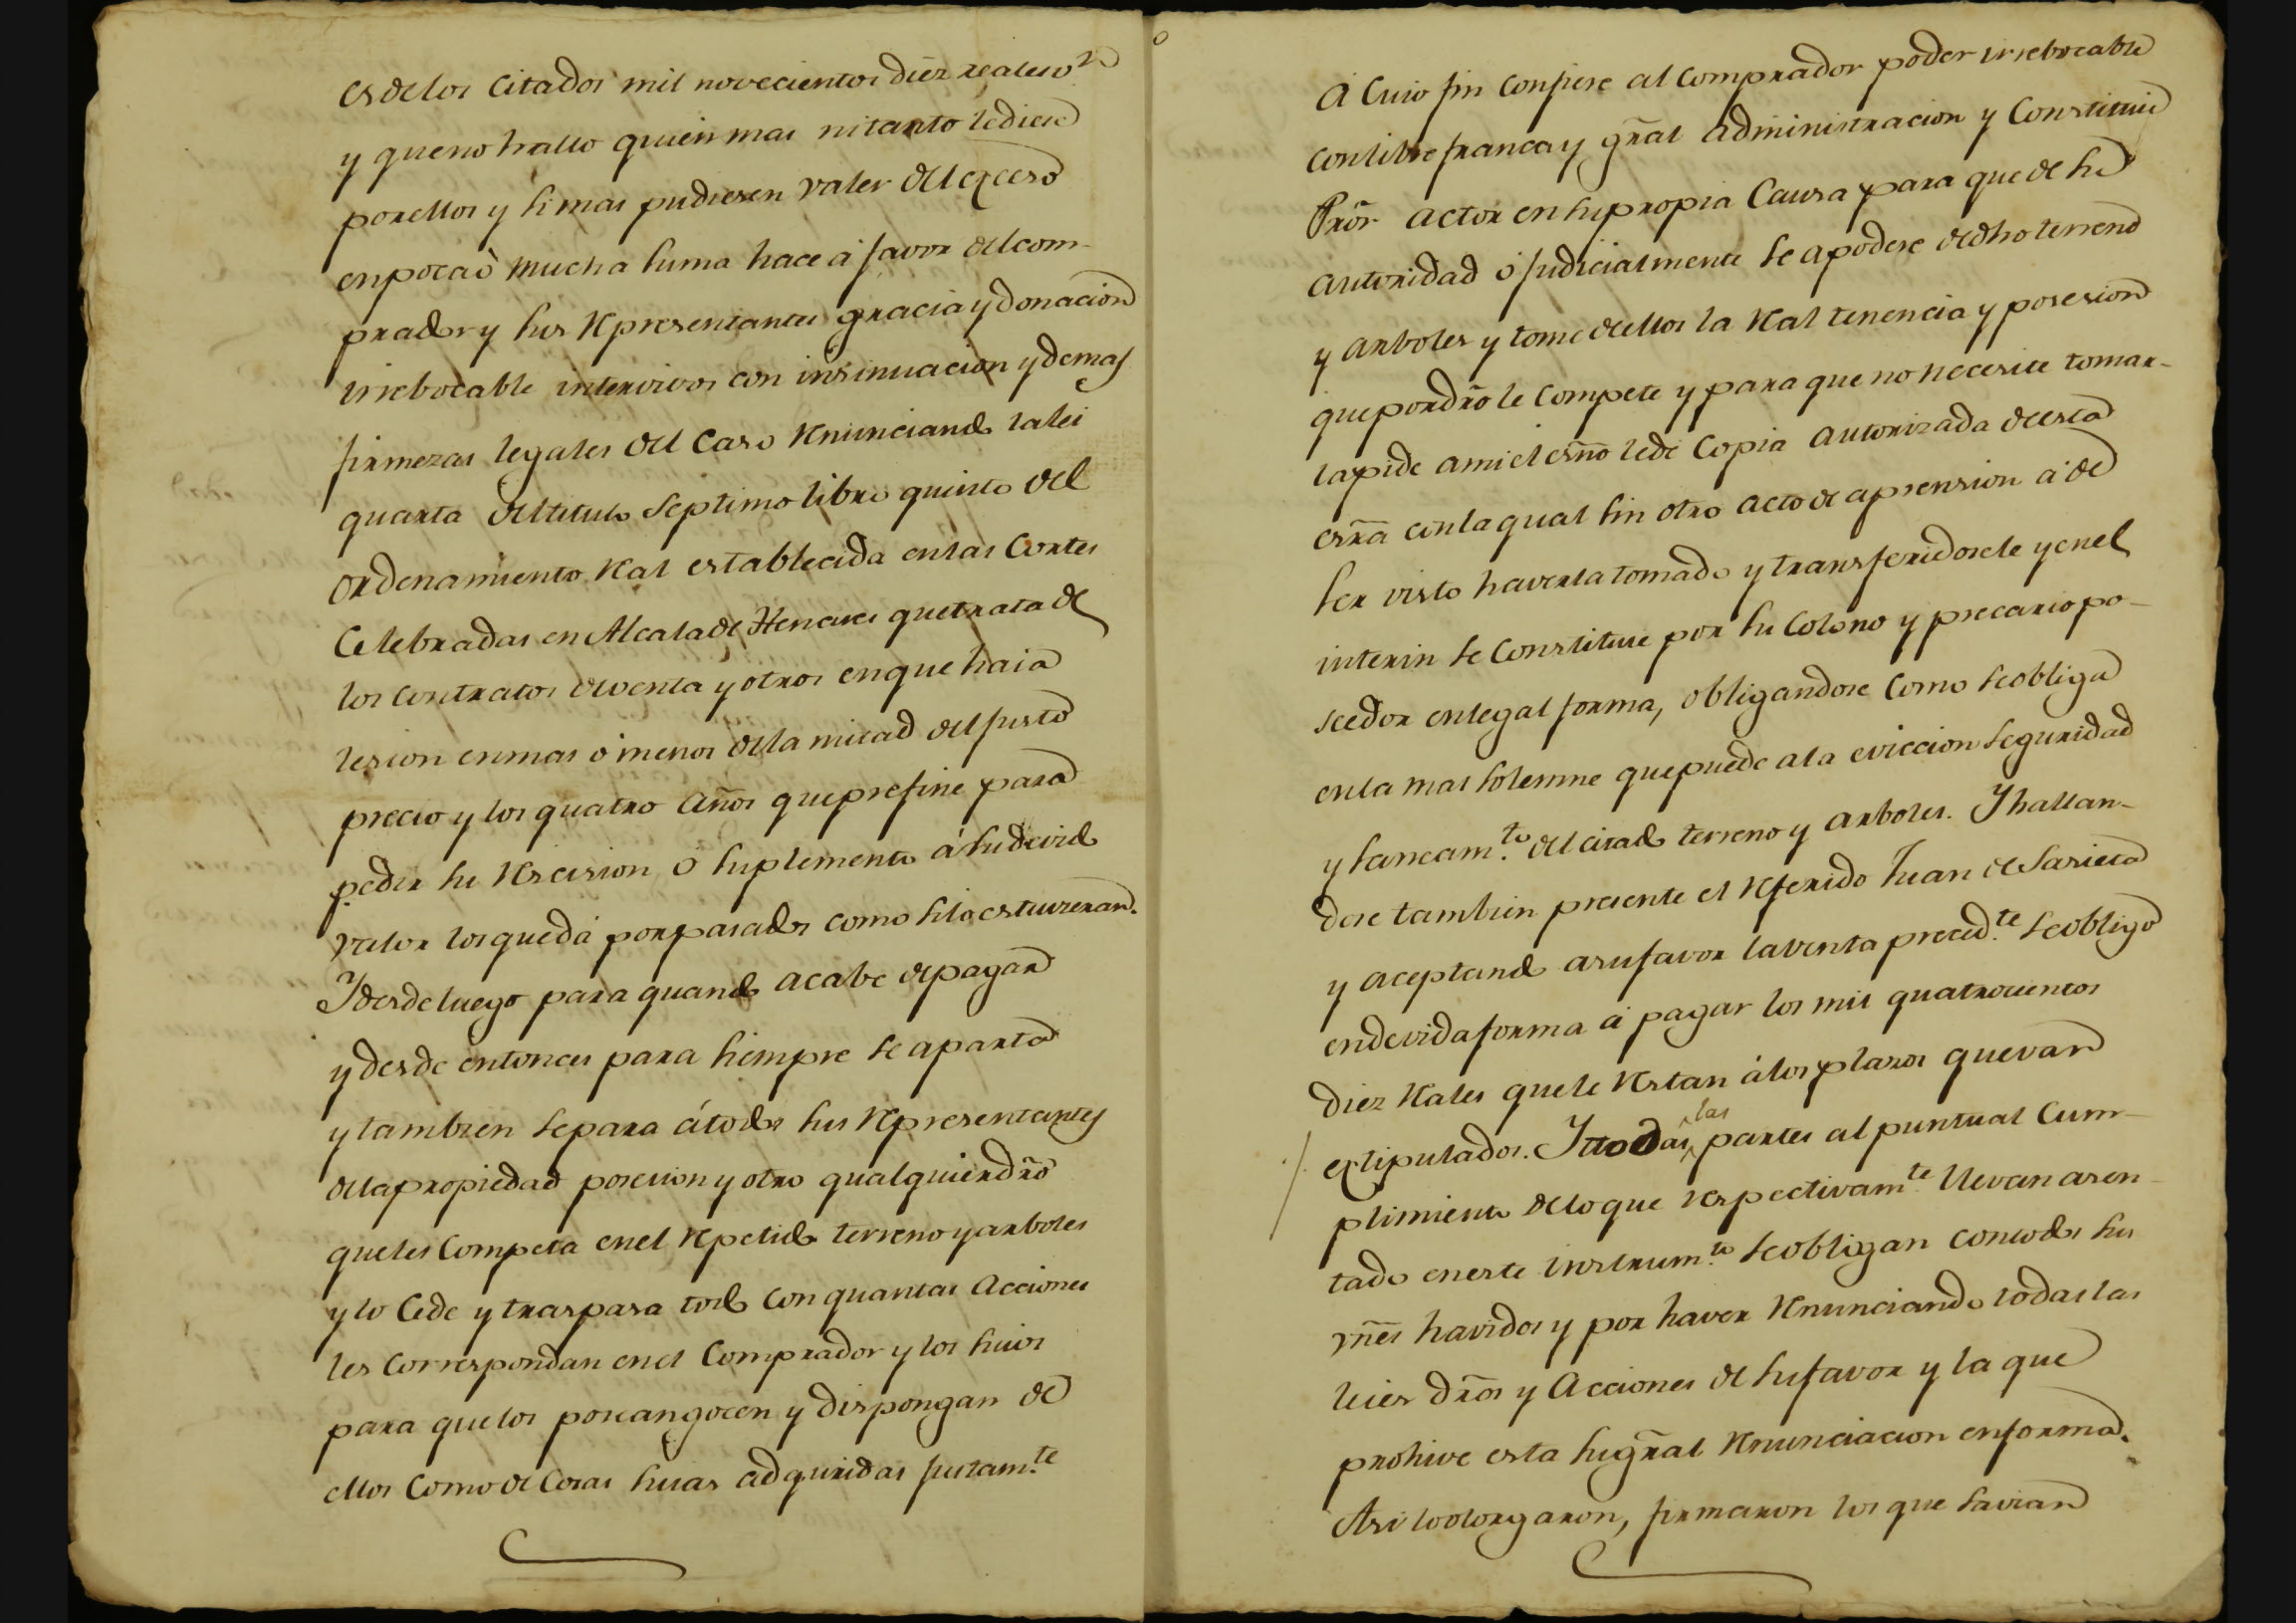 es de los citados mil novecientos diez reales v.n
y que no hallo quien mas ni tanto le diese
por ellos y si mas pudiesen valer del exceso
en poca ò mucha suma hace à favor del com-
prador y sus Representantes gracia y donacion
irrebocable intervivos con insinuacion y demas
firmezas legales del caso Renunciando la lei
quarta del titulo septimo libro quinto del
ordenamiento Real establecida en las Cortes
Celebradas en Alcala de Henares que trata de
los contratos de venta y otros en que haia
lesion en mas ó menos de la mitad del justo
precio y los quatro años que prefine para
pedir su Rescision ó suplemento á su devido
valor los que dá por pasados como si lo estuvieran.
Y desde luego para quando acabe de pagar
y desde entonces para siempre se aparta
y tambien separa á todos sus Representantes
de la propiedad posesion y otro qualquier dr̃o
que les competa en el Repetido terreno y arboles
y lo Cede y traspasa todo con quantas Acciones
les Correspondan en el Comprador y los suios
para que los posean gocen y dispongan de
ellos Como de Cosas suias adquiridas justam.te
À Cuio fin Confiere al Comprador poder irrebocable
con libre franca y gr̃al administracion y Constituie
Pror̃ actor en su propia Causa para que de su
autoridad ó judicialmente se apodere de dho terreno
y arboles y tome de ellos la Real tenencia y posesion
que por dr̃o le Compete y para que no necesite tomar-
la pide a mi el esñ̃o le dé Copia autorizada de esta
esr̃a con la qual sin otro acto de aprension á de
ser visto haverla tomado y transferidosele y en el
interin se Constitue por su Colono y precario po-
seedor en legal forma, obligandose Como se obliga
en la mas solemne que puede a la eviccion seguridad
y saneam.to del citado terreno y arboles. Y hallan-
dose tambien presente el Referido Juan de Sarieta
y aceptando a su favor la venta preced.te se obligó
en devida forma á pagar los mil quatrocientos
diez Reales que le Restan á los plazos que van
extipulados. Y todas las partes al puntual Cum-
plimiento de lo que respectivam.te llevan asen-
tado en este instrum.to se obligan con todos sus
vñes havidos y por haver Renunciando todas las
leies dr̃os y Acciones de su favor y la que
prohive esta su gr̃al Renunciacion en forma.
Asi lo otorgaron, firmaron los que savian